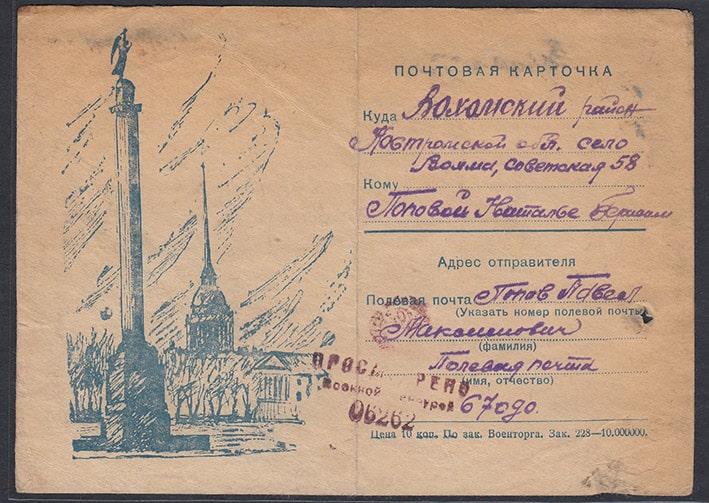 ПОЧТОВАЯ КАРТОЧКА
Куда Вохомский район
Костромской обл. село
Вохма, Советская 58
Кому
Поповой Наталье
Адрес отправителя
Полевая почта Попов Павел
(Указать номер полевой почты)
Максимович
(фамилия)
Полевая почта
(имя, отчество)
67090.
ПРОСМ РЕНО
Военной ензурой
06262
Цена 10 коп. По зак. Военторга. Зак. 228—10.000000.